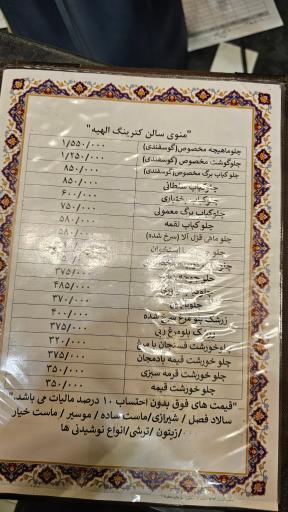 "منوی سالن کترینگ الهیه"
چلوماهیچه مخصوص(گوسفندی) ۱/۵۵۰/۰۰۰
چلوگوشت مخصوص (گوسفندی) ۱/۲۵۰/۰۰۰
چلو کباب برگ مخصوص(گوسفندی) ۸۵۰/۰۰۰
چلوکباب سلطانی ۸۵۰/۰۰۰
چلوکباب بختیاری ۶۰۰/۰۰۰
چلوکباب برگ معمولی ۷۵۰/۰۰۰
چلو کباب لقمه ۵۸۰/۰۰۰
چلو ماهی قزل آلا (سرخ شده) ۵۸۰/۰۰۰
استخوان
۵۸۰/۰۰۰
چلو جوجه ۳۷۵/۰۰۰
۴۸۵/۰۰۰
۳۷۰/۰۰۰
زرشک پلو مرغ سرخ شده ۴۰۰/۰۰۰
زرشک پلومرغ ربی ۳۷۵/۰۰۰
چلوخورشت فسنجان با مرغ ۳۲۰/۰۰۰
چلو خورشت قیمه بادمجان ۳۷۵/۰۰۰
چلو خورشت قرمه سبزی ۳۵۰/۰۰۰
چلو خورشت قیمه ۳۵۰/۰۰۰
"قیمت های فوق بدون احتساب ۱۰ درصد مالیات می باشد."
سالاد فصل / شیرازی/ماست ساده / موسیر / ماست خیار
/زیتون /ترشی/انواع نوشیدنی ها